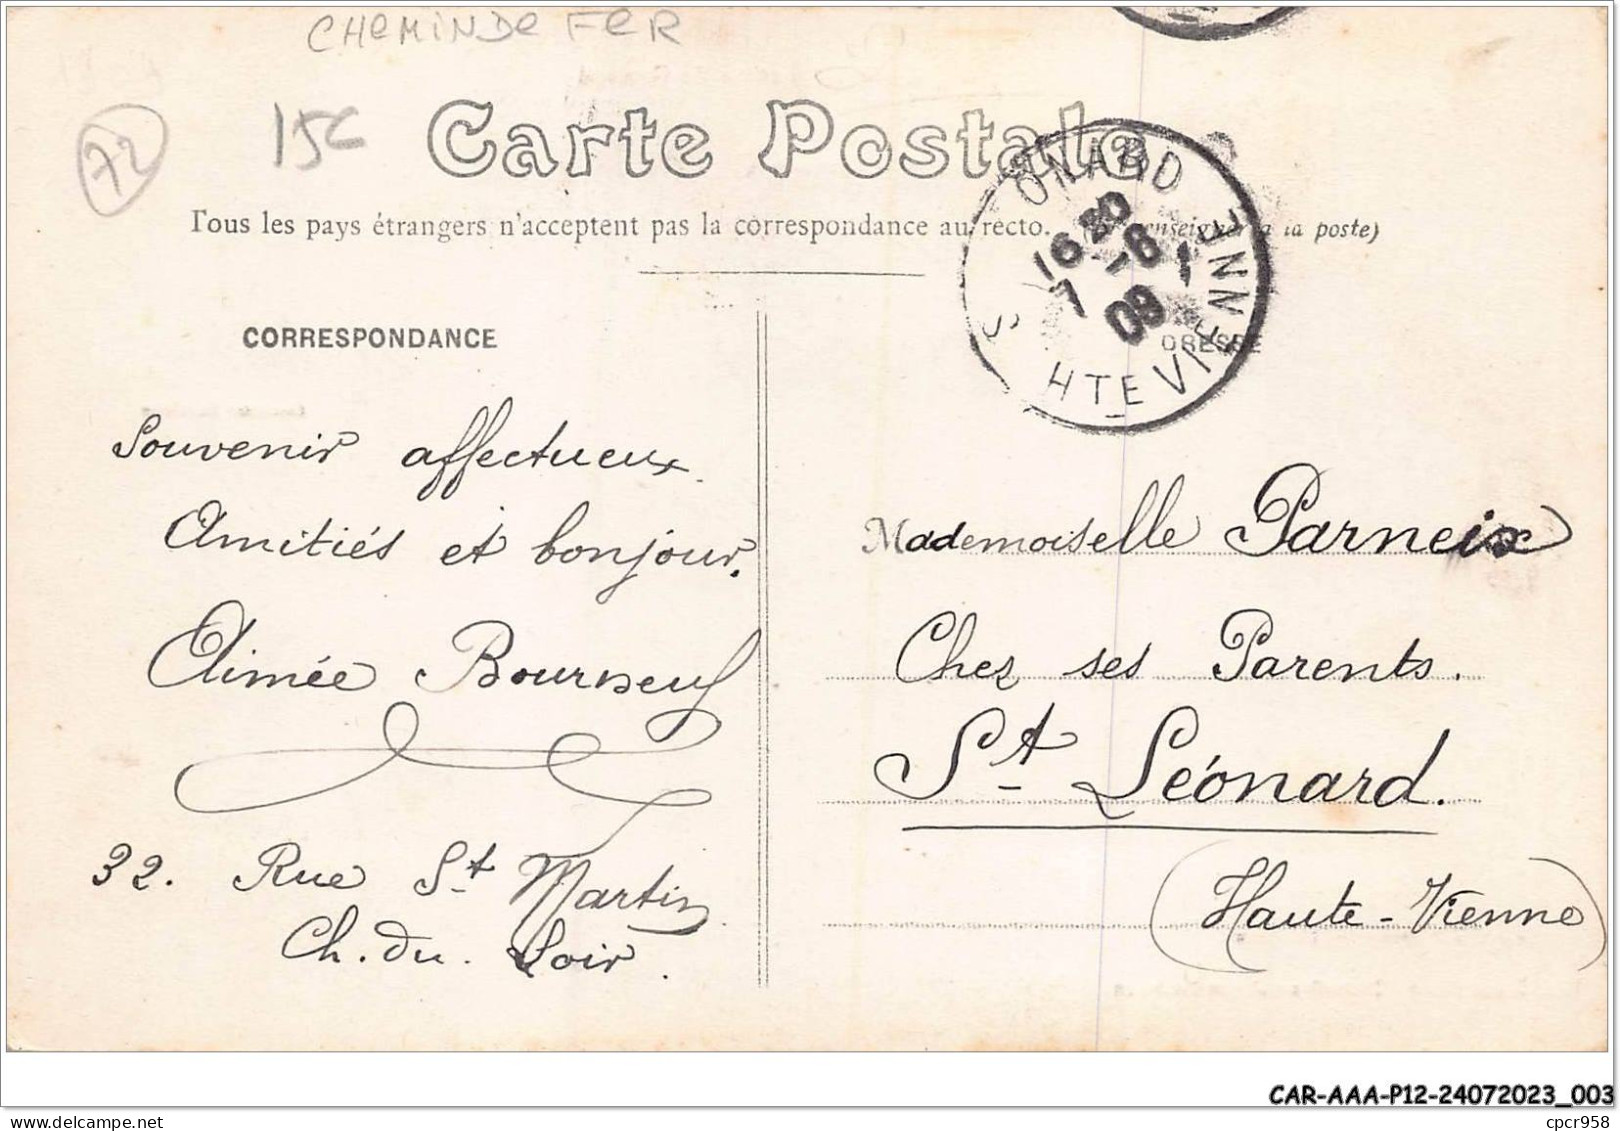 CHEMINDE FER
72
15C
Carte Postale
Tous les pays étrangers n'acceptent pas la correspondance au recto. à la poste)
S ONARD
16 30
7 -8
09
HTE VIENNE
CORRESPONDANCE
DRESSE
Souvenir affectueux
Amitiés et bonjour.
Aimée Bourneuf
32. Rue St Martin
Ch. du. Loir.
Mademoiselle Parneix
Chez ses Parents.
St Léonard.
(Haute-Vienne)
CAR-AAA-P12-24072023_003
cpcr958